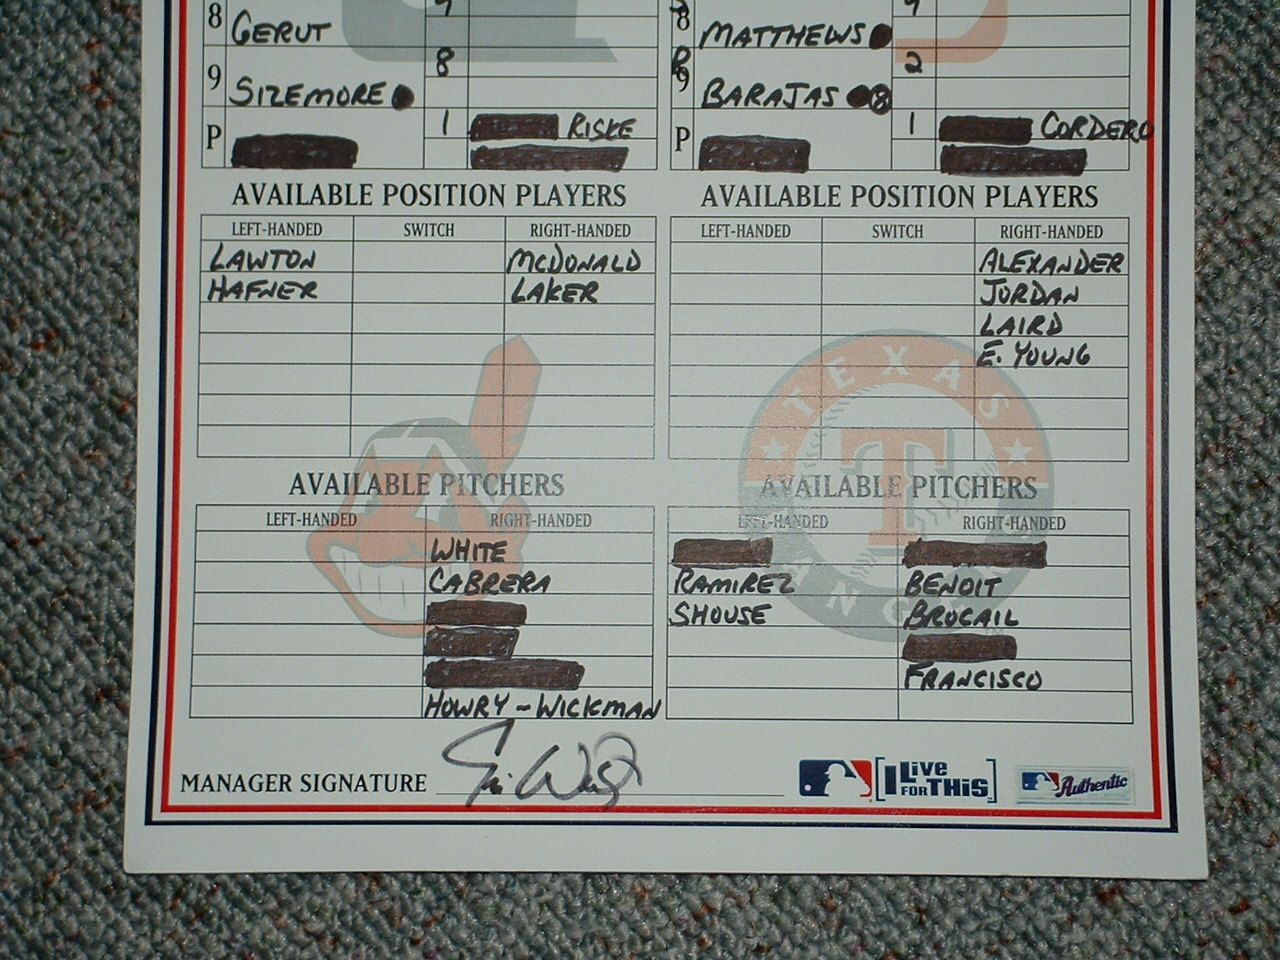 8 GERUT
8 MATTHEWS
8
2
9 SIZEMORE
9 BARAJAS 8
P
1 RISKE
P
1 CORDERO
AVAILABLE POSITION PLAYERS
AVAILABLE POSITION PLAYERS
LEFT-HANDED SWITCH RIGHT-HANDED
LEFT-HANDED SWITCH RIGHT-HANDED
LAWTON MCDONALD
ALEXANDER
HAFNER LAKER
JORDAN
LAIRD
E. YOUNG
TEXAS
T
AVAILABLE PITCHERS
AVAILABLE PITCHERS
LEFT-HANDED RIGHT-HANDED
LEFT-HANDED RIGHT-HANDED
WHITE
CABRERA
RAMIREZ BENOIT
SHOUSE BROCAIL
FRANCISCO
HOWRY - WICKMAN
MANAGER SIGNATURE
LiVe
I FOR THiS
Authentic